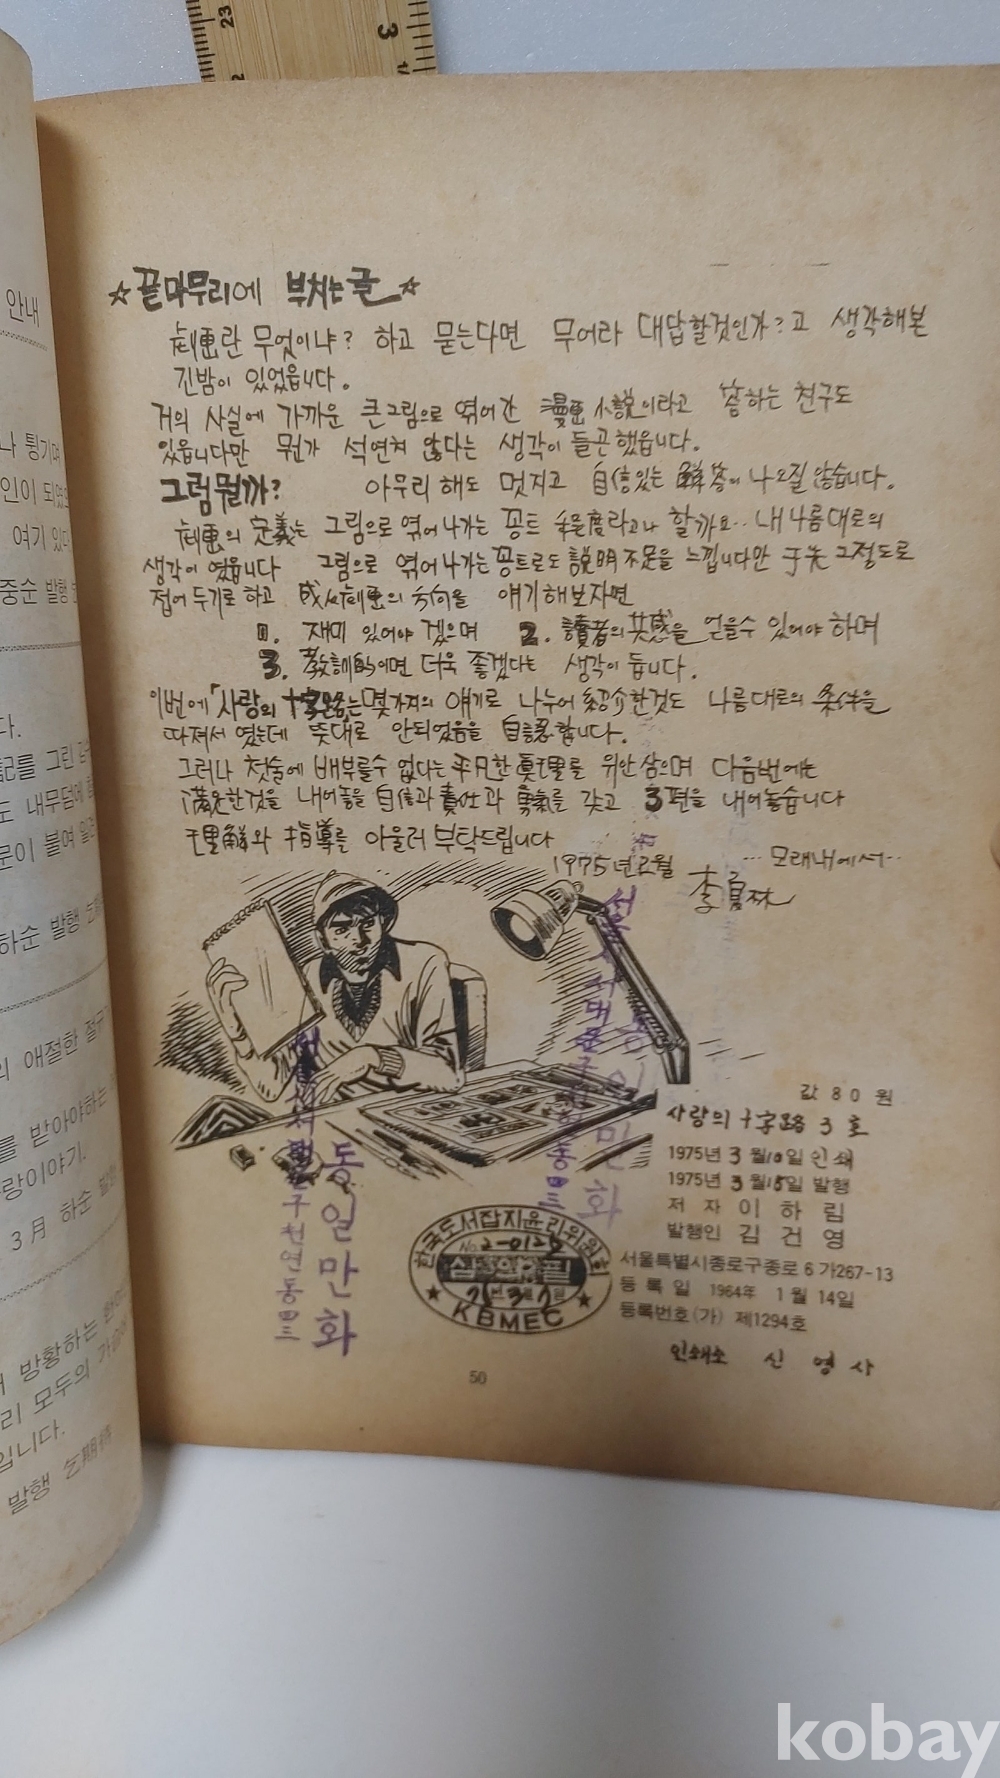 안내
나 튕기며
인이 되었
여기 있다
중순 발행
다.
記를 그린
도 내무덤에
문이 붙여
하순 발행
의 애절한 절규
를 받아야하는
랑이야기.
3月 하순 발행
방황하는
리 모두의
입니다.
발행
☆끝마무리에 부치는글☆
劇画란 무엇이냐? 하고 묻는다면 무어라 대답할것인가?고 생각해본
긴밤이 있었읍니다.
거의 사실에 가까운 큰그림으로 엮어간 漫画小説이라고 答하는 친구도
있읍니다만 뭔가 석연쳐 않다는 생각이 들곤했읍니다.
그럼뭘까? 아무리 해도 멋지고 自信있는 解答이 나오질 않습니다.
劇画의 定義는 그림으로 엮어나가는 꽁트 程度라고나 할까요.. 내나름대로의
생각이 였읍니다 그림으로 엮어나가는 꽁트로도 説明不足을 느낍니다만 于先 그정도로
접어 두기로 하고 成人劇画의 方向을 얘기해보자면
1. 재미 있어야 겠으며 2. 讀者의 共感을 얻을수 있어야 하며
3. 敎訓的이면 더욱 좋겠다는 생각이 듭니다.
이번에 「사랑의 十字路」는 몇가지의 얘기로 나누어 紹介한것도 나름대로의 条件을
따져서 였는데 뜻대로 안되었음을 自認합니다.
그러나 첫술에 배부를수 없다는 平凡한 眞理를 위안 삼으며 다음번에는
滿足한것을 내어놓을 自信과 責任과 勇氣를 갖고 3편을 내어놓습니다
理解와 指導를 아울러 부탁드립니다
1975년2월 ...모래내에서..
李夏林
값 80 원
사랑의 十字路 3 호
1975년 3월10일 인쇄
1975년 3월15일 발행
저 자 이 하 림
발행인 김 건 영
서울특별시종로구종로 6 가267-13
등 록 일 1964年 1 월 14일
등록번호(가) 제1294호
인쇄소 신 영 사
한국도서잡지윤리위원회
No.2-012
심의필
KBMEC
서울 서대문구 천연동 四三
동일만화
50
3
23
kobay